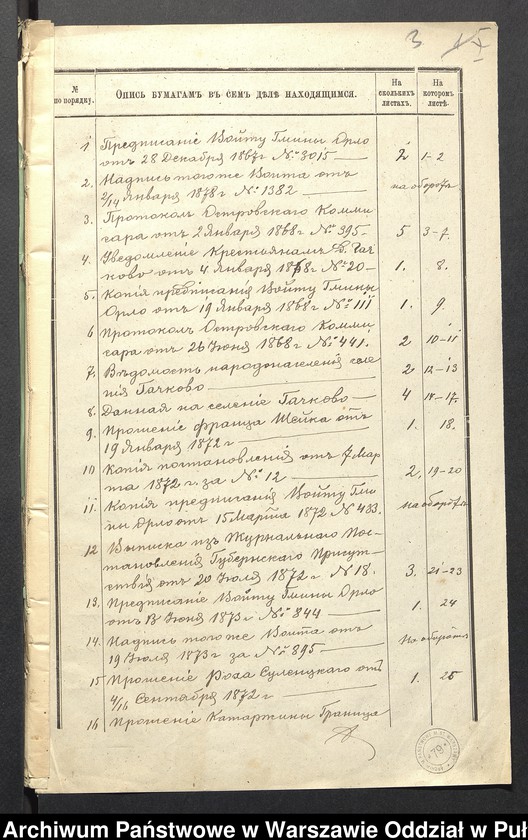 3
№ по порядку.
Опись бумагамъ въ семъ дѣлѣ находящимся.
На сколькихъ листахъ.
На которомъ листѣ.
1 Предписаніе Войту Гмины Орло
отъ 28 Декабря 1867 г № 3015 — 2 1-2
2. Надпись тогоже Войта отъ
2/14 Января 1878 г № 1382 — на оборотѣ
3. Протоколъ Островскаго Комми
сара отъ 2 Января 1868 г № 395 — 5 3-7.
4. Уведомленіе Крестьянамъ Гач
ково отъ 4 Января 1868 г № 20 — 1. 8.
5. Копія предписанія Войту Гмины
Орло отъ 19 Января 1868 г № 111 1. 9.
6 Протоколъ Островскаго Комми
сара отъ 26 Іюня 1868 г № 441. 2 10-11
7. Вѣдомость народонаселенія селе
нія Гачково — 2 12-13
8. Данная на селеніе Гачково — 4 14-17.
9. Прошеніе Франца Шейка отъ
19 Января 1872 г — 1. 18.
10 Копія постановленія отъ 7 Мар
та 1872 г. за № 12 — 2, 19-20
11. Копія предписанія Войту Гми
ны Орло отъ 15 Марта 1872 № 433. на оборотѣ
12 Выписка изъ Журнальнаго Пос-
тановленія Губернскаго Присут-
ствія отъ 20 Іюля 1872 г № 18. 3. 21-23
13. Предписаніе Войту Гмины Орло
отъ 13 Іюня 1873 г № 844 — 1. 24
14. Надпись тогоже Войта отъ
19 Іюля 1873 г за № 895 — На оборотѣ
15 Прошеніе Роха Суленцкаго отъ
4/16 Сентября 1872 г — 1. 25
16 Прошеніе Катаржины Граница
79
Archiwum Państwowe w Warszawie Oddział w Puł